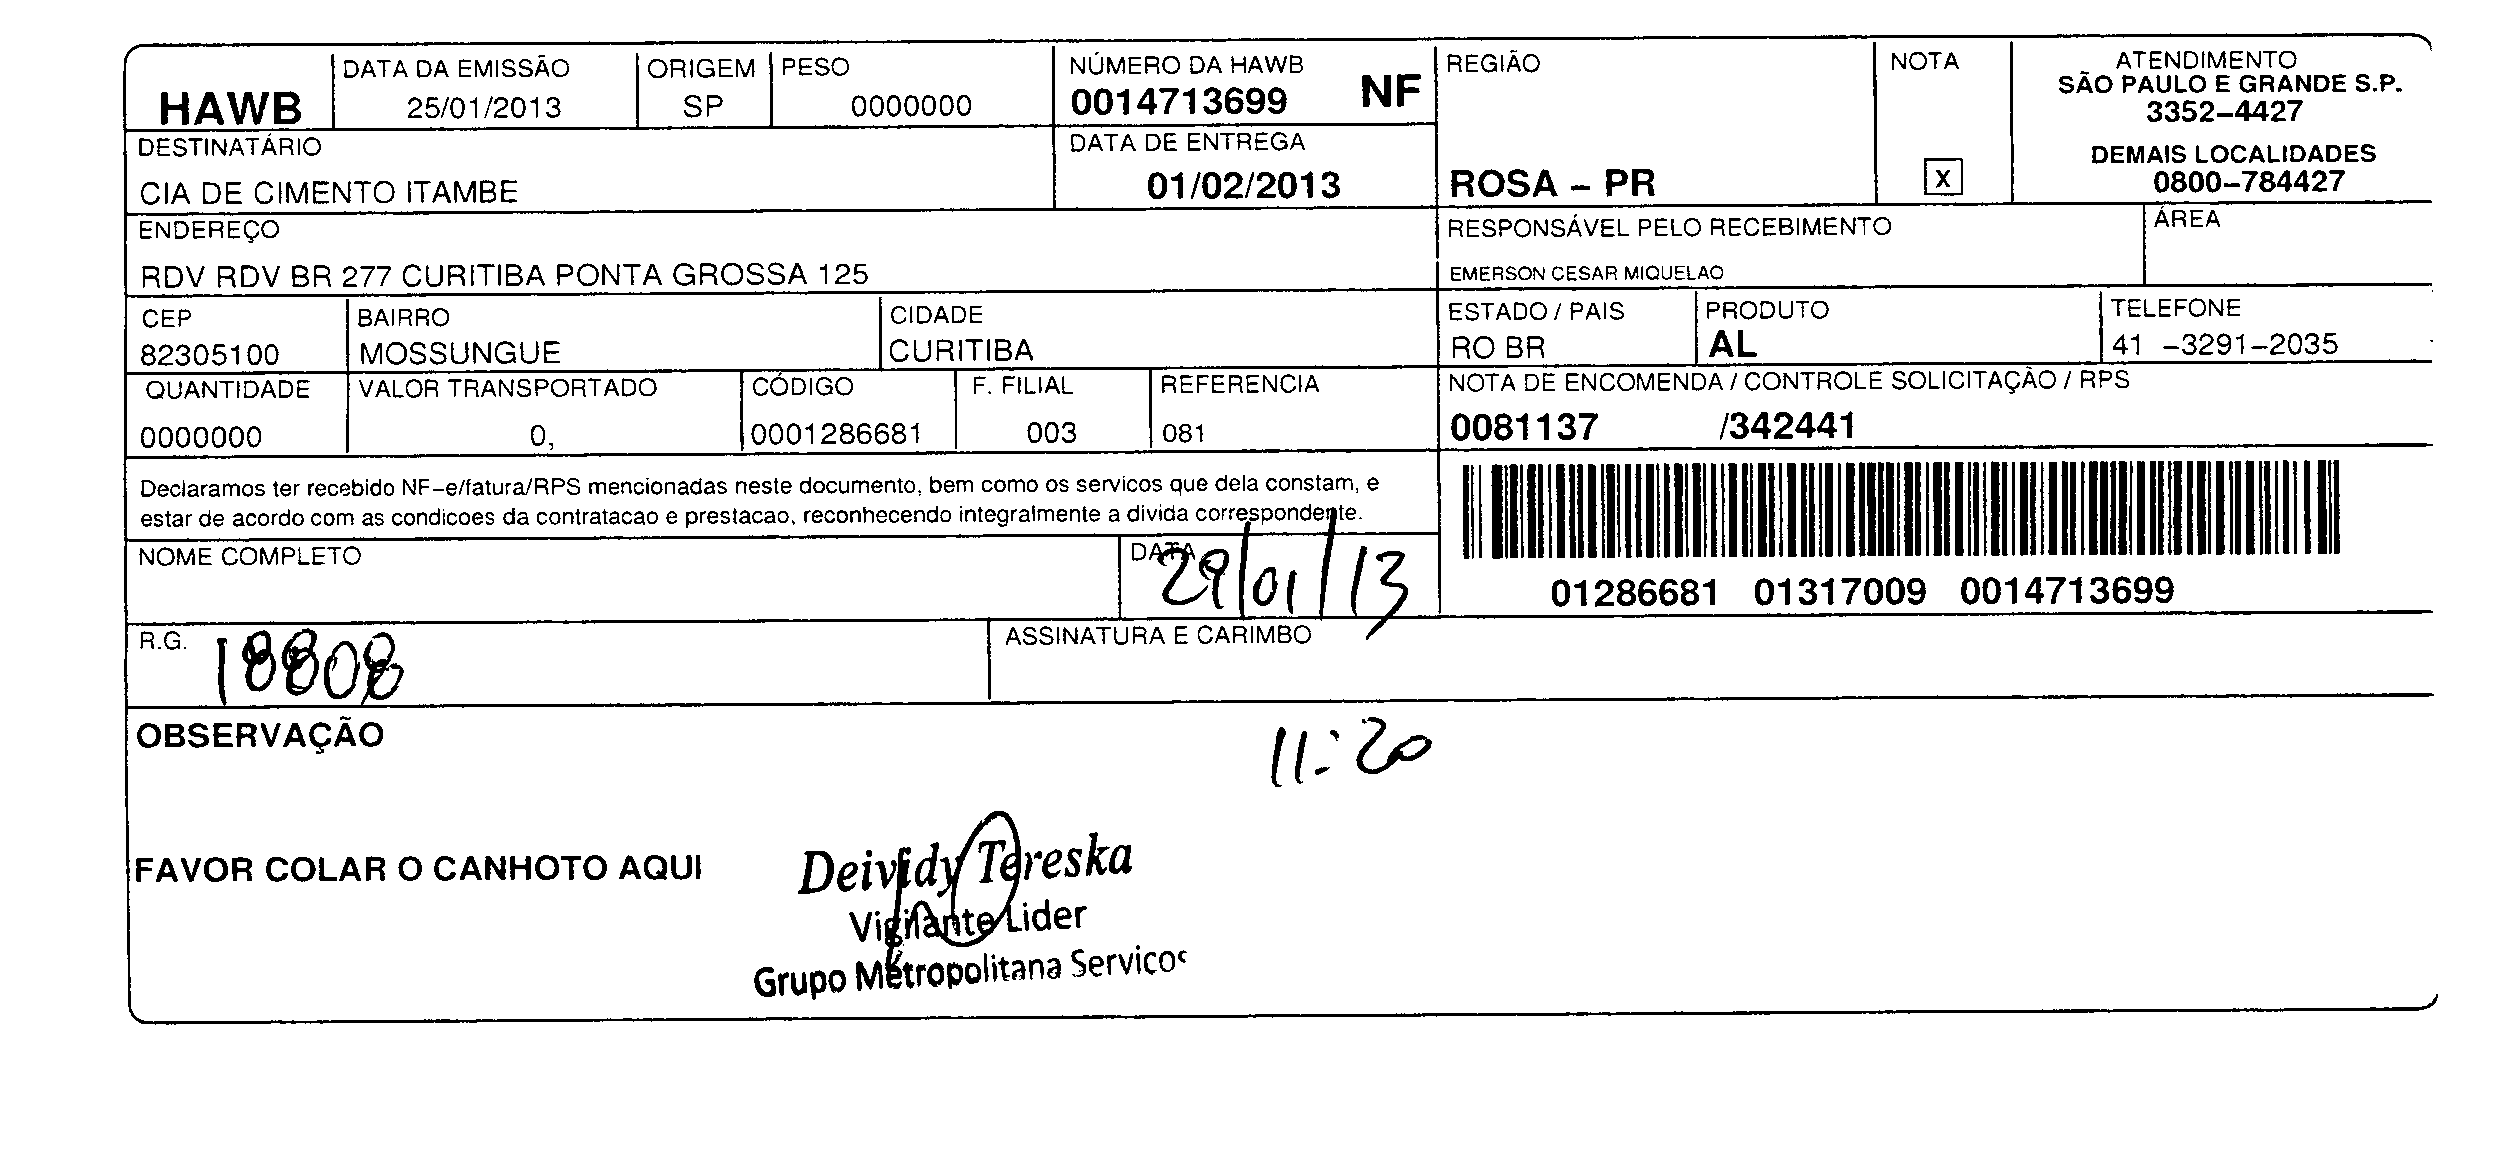 HAWB
DATA DA EMISSÃO
25/01/2013
ORIGEM
SP
PESO
0000000
NÚMERO DA HAWB
0014713699 NF
REGIÃO
ROSA – PR
NOTA
X
ATENDIMENTO
SÃO PAULO E GRANDE S.P.
3352–4427
DEMAIS LOCALIDADES
0800–784427
DESTINATÁRIO
CIA DE CIMENTO ITAMBE
DATA DE ENTREGA
01/02/2013
ENDEREÇO
RDV RDV BR 277 CURITIBA PONTA GROSSA 125
RESPONSÁVEL PELO RECEBIMENTO
EMERSON CESAR MIQUELAO
ÁREA
CEP
82305100
BAIRRO
MOSSUNGUE
CIDADE
CURITIBA
ESTADO / PAIS
RO BR
PRODUTO
AL
TELEFONE
41 –3291–2035
QUANTIDADE
0000000
VALOR TRANSPORTADO
0,
CÓDIGO
0001286681
F. FILIAL
003
REFERENCIA
081
NOTA DE ENCOMENDA / CONTROLE SOLICITAÇÃO / RPS
0081137 /342441
Declaramos ter recebido NF–e/fatura/RPS mencionadas neste documento, bem como os servicos que dela constam, e
estar de acordo com as condicoes da contratacao e prestacao, reconhecendo integralmente a divida correspondente.
01286681 01317009 0014713699
NOME COMPLETO
DATA
29/01/13
R.G.
18808
ASSINATURA E CARIMBO
OBSERVAÇÃO
11:20
FAVOR COLAR O CANHOTO AQUI
Deividy Tereska
Vigilante Lider
Grupo Metropolitana Servicos